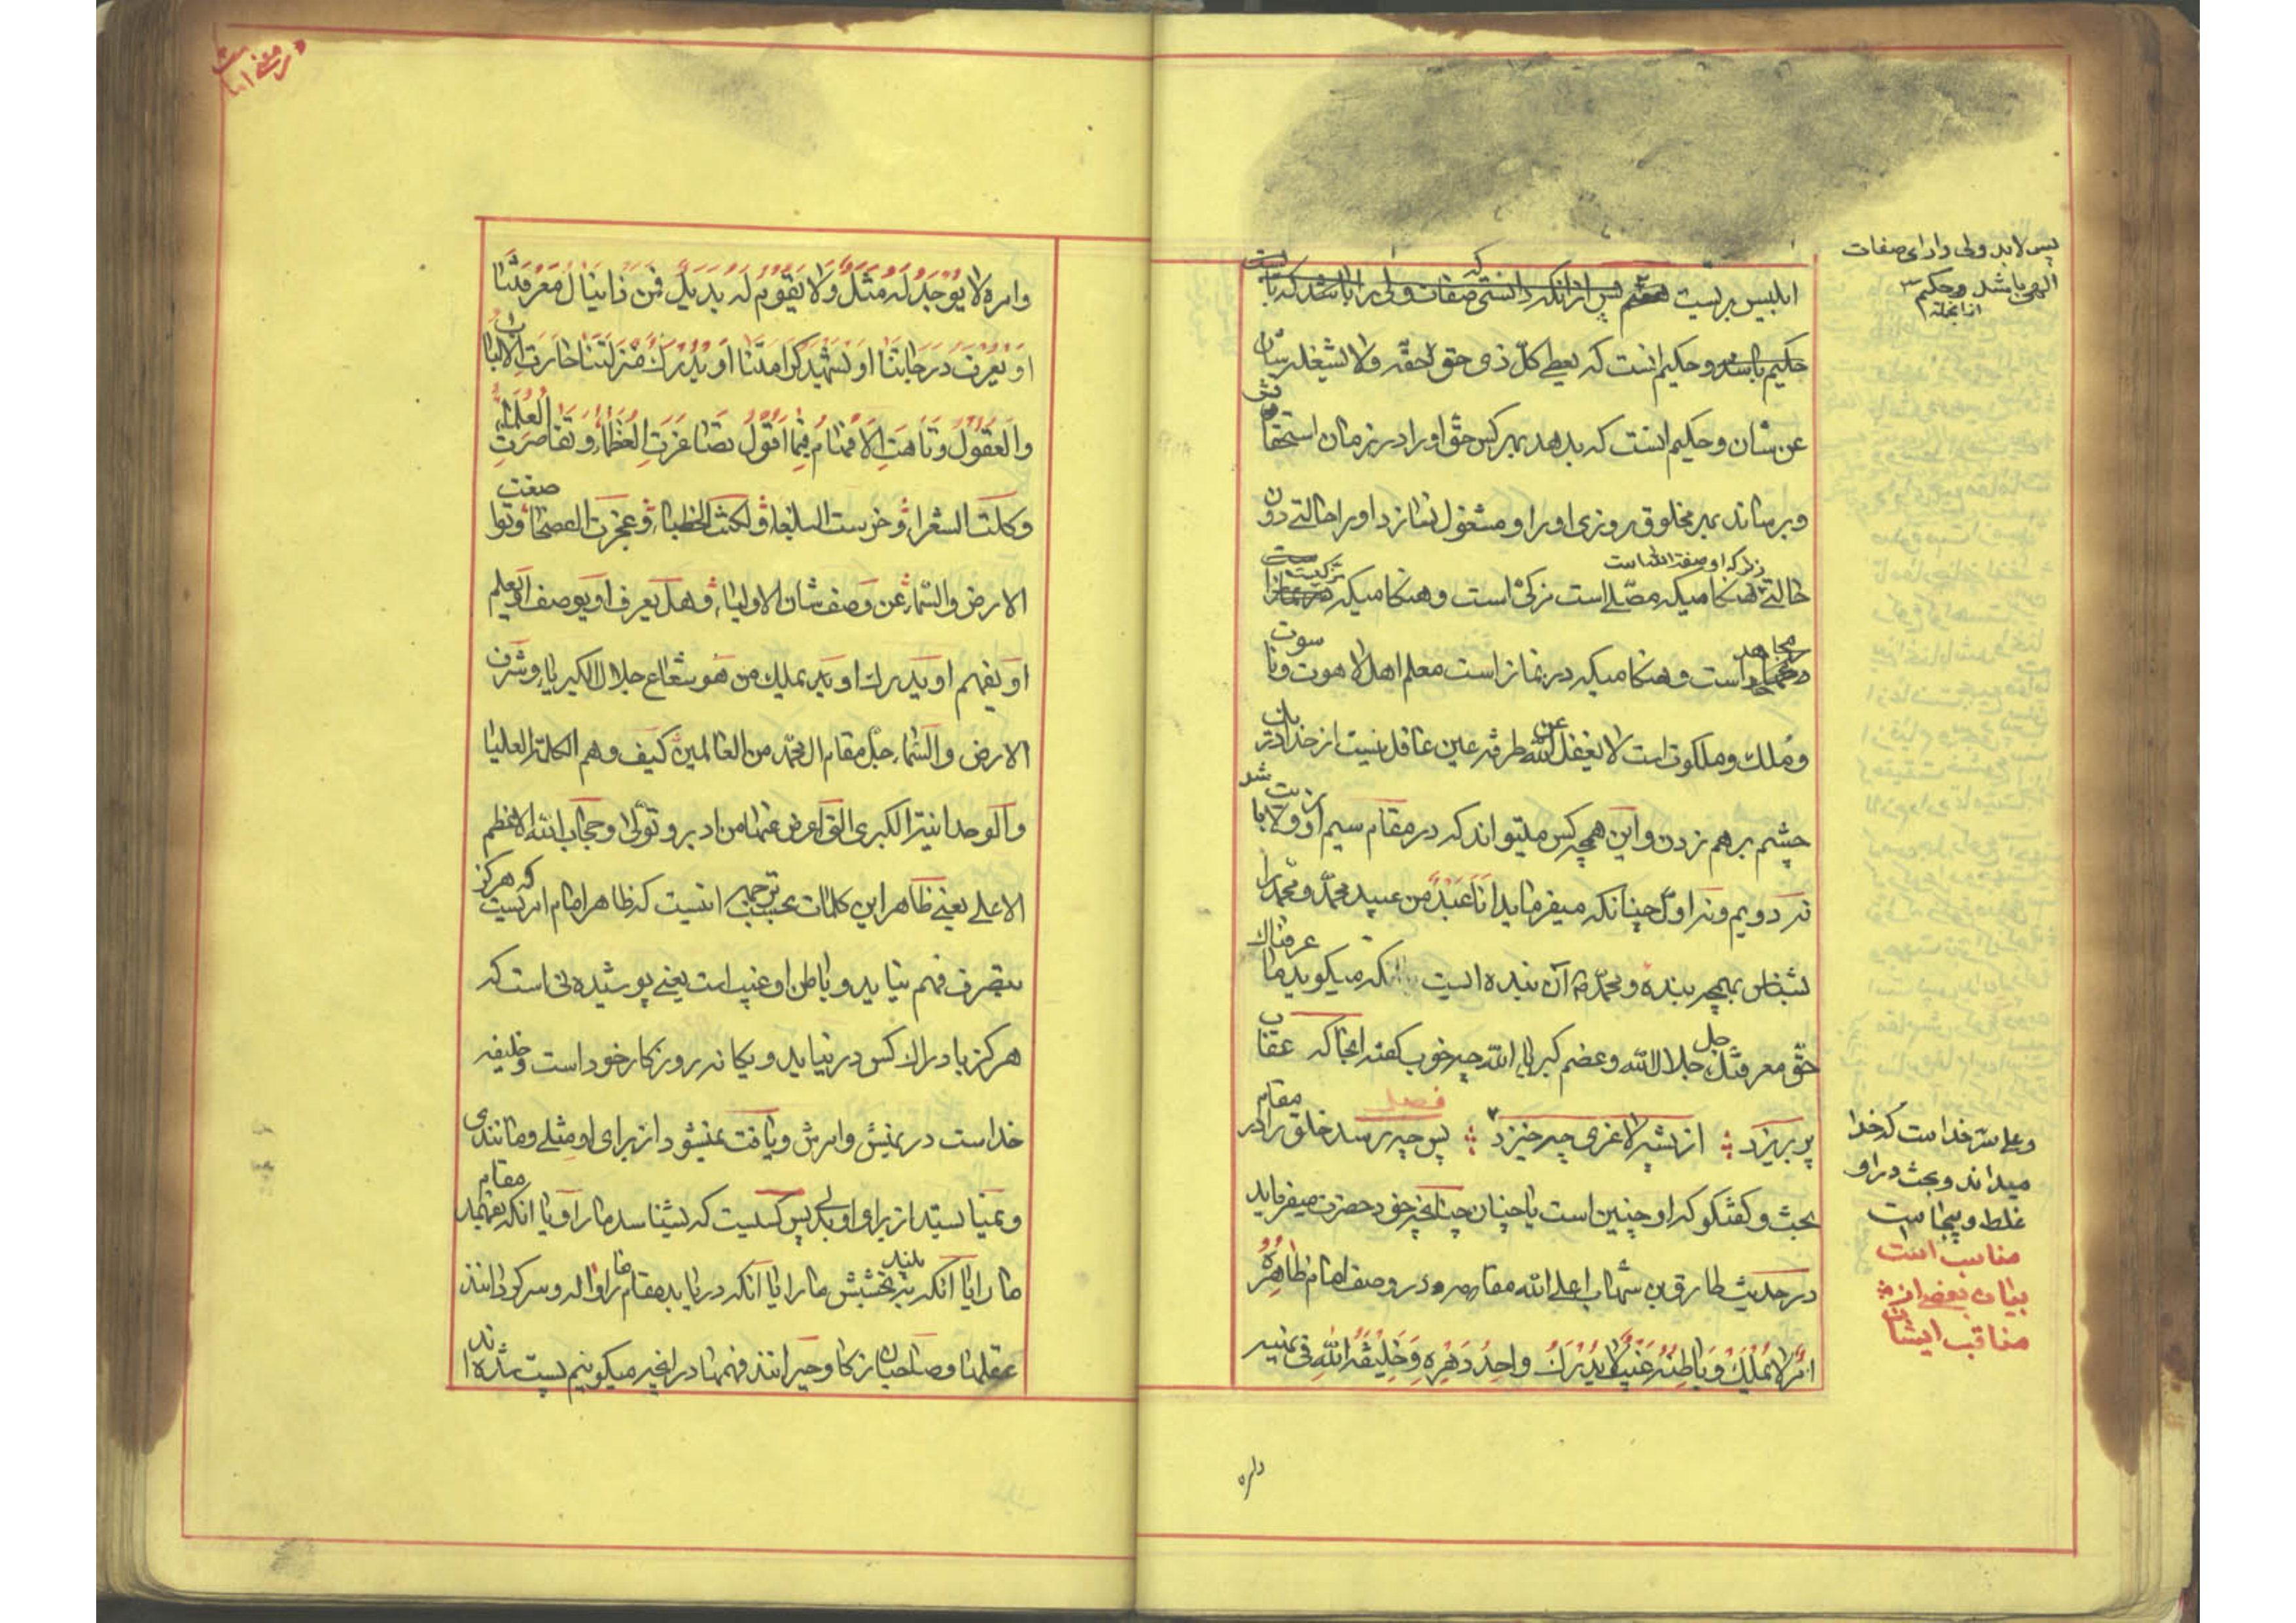 پس لابد ولی دارای صفات
الهی باشد و حکیم
ابلیس بریست پس از آنکه دانستی که صفات ولی را باید
حکیم باشد و حکیم آنست که یعطی کل ذی حق حقه و لا یشغله شان
عن شان و حکیم آنست که بدهد بهر کس حق او را در زمان استحقاقش
و برساند بهر مخلوق روزی او را و مشغول نسازد او را حالتی دون
حالتی هنگامیکه مصلی است مزکی است و هنگامیکه
مجاهد است و هنگامیکه در نماز است معلم اهل لاهوت و ناسوت
و ملک و ملکوت است لا یغفل عن الله طرفة عین غافل نیست از خدا
چشم برهم زدن و این همه چه کس میتواند که در مقام سیم او ولایت باشد
نه دویم و نه اول چنانکه میفرماید انا عبد من عبید محمد و محمد را
بشناس بهمچه بنده و محمد هم آن بنده است که میگوید ما عرفناک
حق معرفتک جل جلال الله و عضم کبریاء الله چه خوب گفته انجا که عقاب
فصل
پر بریزد از پشه لاغری چه خیزد پس چه رسد خلق را در مقام
بحث و گفتگو که او چنین است یا چنان چنانچه خود حضرت میفرماید
در حدیث طارق بن شهاب اعلی الله مقامه در وصف امام ظاهره
امر لا یملک و باطنه غیب لا یدرک واحد دهره و خلیفة الله فی نهیه
و علی سر خداست که خدا
میداند و بحث در او
غلط و بیجا است
مناسب است
بیان بعضی از
مناقب ایشان
و امره لا یوجد له مثل و لا یقوم له بدیل فمن ذا ینال معرفتنا
او یعرف درجاتنا او یشهد کرامتنا او یدرک منزلتنا حارت الالباب
و العقول و تاهت الافهام فیما اقول تصاغرت العظماء و تقاصرت العلماء
و کلت الشعراء و خرست البلغاء و لکنت الخطباء و عجزت الفصحاء و تواضعت
الارض و السماء عن وصف شان الاولیاء و هل یعرف او یوصف او یعلم
او یفهم او یدرک او یملک من هو شعاع جلال الکبریاء و شرف
الارض و السماء جل مقام ال محمد من العالمین کیف و هم الکلمة العلیا
و الوحدانیة الکبری التی اعرض عنها من ادبر و تولی و حجاب الله الاعظم
الاعلی یعنی ظاهر این کلمات بحسب ترجمه اینست که ظاهر امام امریست که هرگز
بتصرف فهم نیاید و باطن او غیب است یعنی پوشیده ئی است که
هرگز بادراک کس در نیاید و یگانه روزگار خود است و خلیفه
خداست در نهیش و امرش و یافت نمیشود از برای او مثلی و مانندی
و نمیباشد از برای او بدلی پس کیست که بشناسد ما را و یا انکه بفهمد مقام
ما را یا انکه ببخشش ما را یا آنکه دریابد مقام بلند ما را واله و سرگردانند
عقلها و صاحبان زکا و حیرانند فهمها در آنچیز میگویم پست شده اند